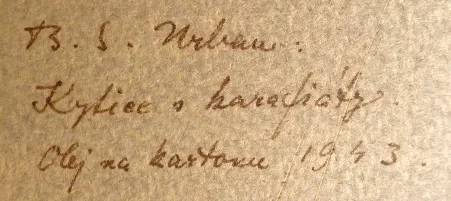 B. S. Urban:
Kytice s karafiáty.
Olej na kartonu 1943.